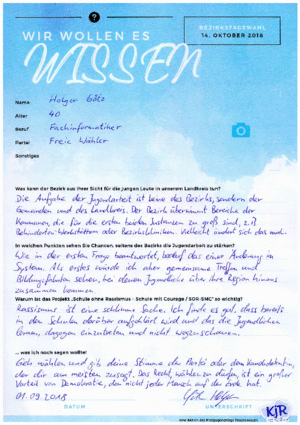 BEZIRKSTAGSWAHL
14. OKTOBER 2018
WIR WOLLEN ES
WISSEN
Name Holger Götz
Alter 40
Beruf Fachinformatiker
Partei Freie Wähler
Sonstiges
Was kann der Bezirk aus Ihrer Sicht für die jungen Leute in unserem Landkreis tun?
Die Aufgabe der Jugendarbeit ist keine des Bezirks, sondern der
Gemeinden und des Landkreis. Der Bezirk übernimmt Bereiche der
Kommunen, die für die ersten beiden Instanzen zu groß sind, z.B.
Behinderten-Werkstätten oder Bezirkskliniken. Vielleicht ändert sich das mal.
In welchen Punkten sehen Sie Chancen, seitens des Bezirks die Jugendarbeit zu stärken?
Wie in der ersten Frage beantwortet, bedarf das einer Änderung im
System. Als erstes würde ich aber gemeinsame Treffen und
Bildungsfahrten sehen, bei denen Jugendliche über ihre Region hinaus
zusammen kommen.
Warum ist das Projekt „Schule ohne Rassismus - Schule mit Courage / SOR-SMC" so wichtig?
Rassismus ist eine schlimme Sache. Ich finde es gut, dass bereits
in den Schulen darüber aufgeklärt wird und das die Jugendlichen
lernen, dagegen einzutreten und nicht wegzuschauen.
... was ich noch sagen wollte!
Geh wählen und gib deine Stimme der Partei oder den Kandidaten,
der dir am meisten zusagt. Das Recht, wählen zu dürfen, ist ein großer
Vorteil von Demokratie, den nicht jeder Mensch auf der Erde hat.
01.09.2018
DATUM UNTERSCHRIFT
KJR